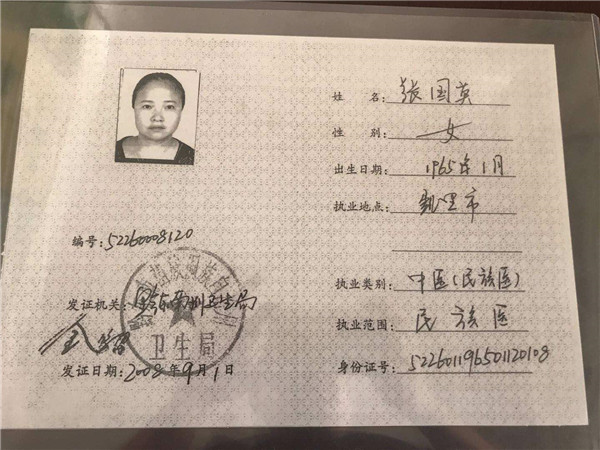 姓 名:张国英
性 别:女
出生日期:1965年1月
执业地点:凯里市
编号:52260008120
发证机关:黔东南州卫生局
卫生局
发证日期:2008年9月1日
执业类别:中医(民族医)
执业范围:民族医
身份证号:522601196501120108